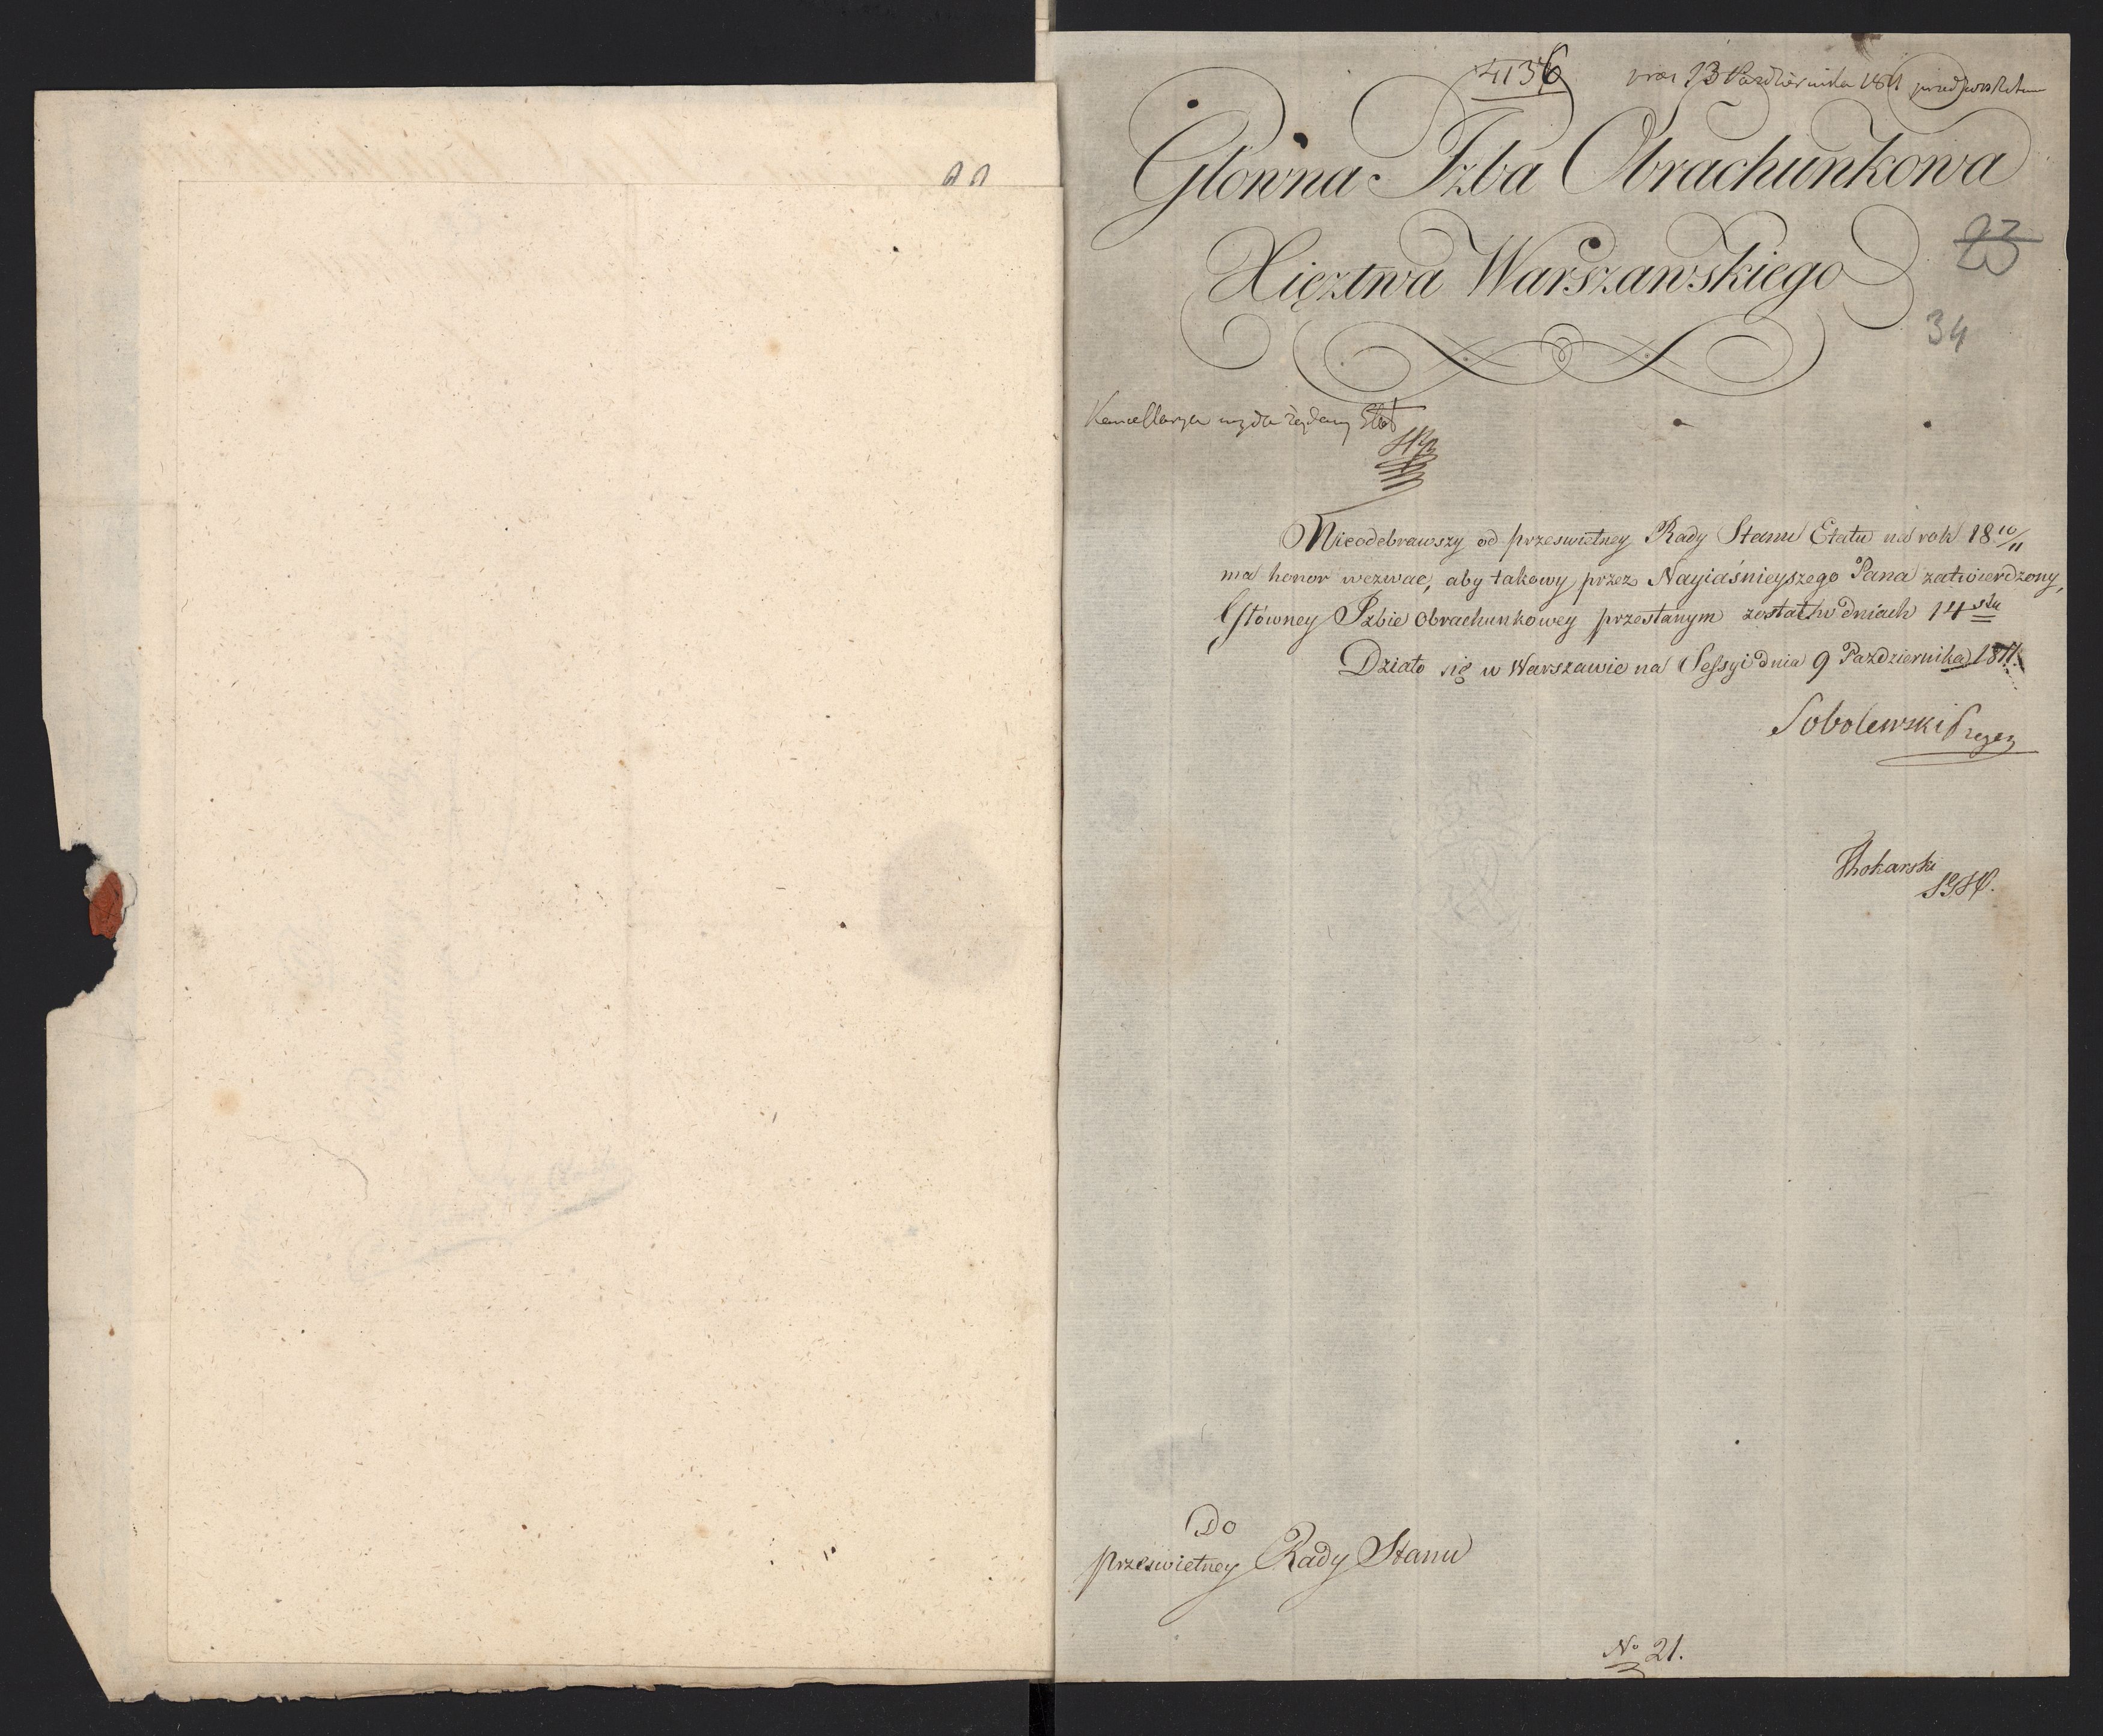 4136
13 Pazdziernika 1811
Główna Izba Obrachunkowa
Xięztwa Warszawskiego
23
34
Kancellarya wyda żądany Etat
Nieodebrawszy od przeswietney Rady Stanu Etatu na rok 18 10/11
ma honor wezwać, aby takowy przez Nayiaśnieyszego Pana zatwierdzony,
Główney Izbie Obrachunkowey przesłanym został w dniach 14stu
Działo się w Warszawie na Sessyi dnia 9 Pazdziernika 1811.
Sobolewski Prezes
Do
Przeswietney Rady Stanu
No 21.